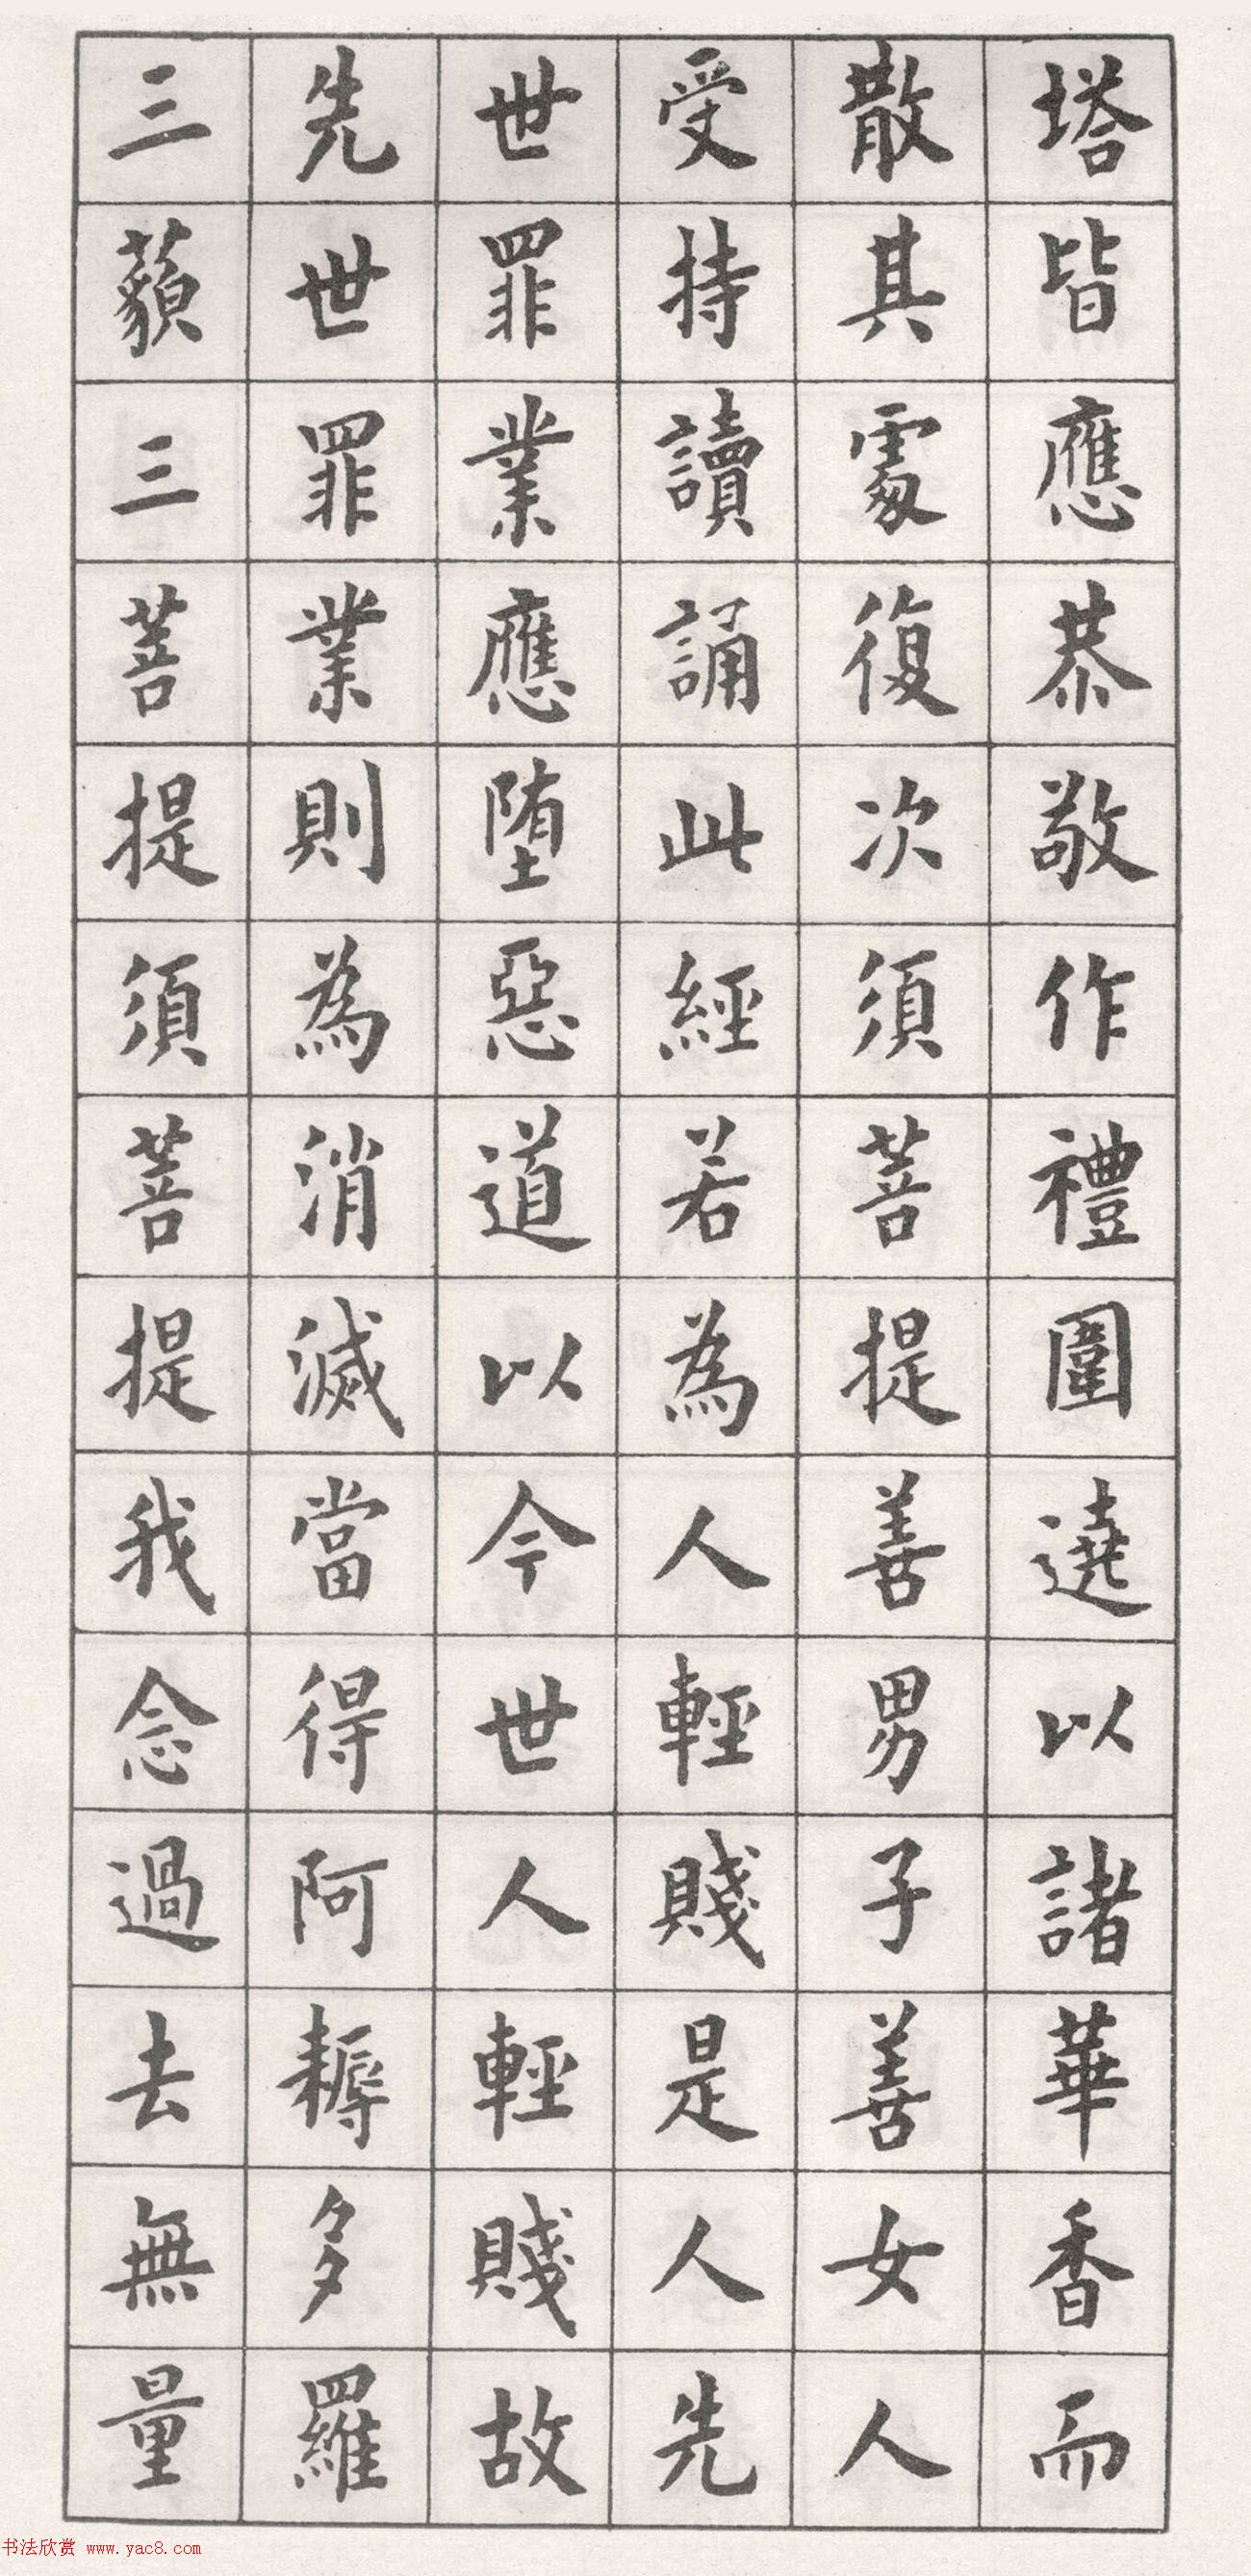 塔皆應恭敬作禮圍遶以諸華香而
散其處復次須菩提善男子善女人
受持讀誦此經若為人輕賤是人先
世罪業應堕惡道以今世人輕賤故
先世罪業則為消滅當得阿耨多羅
三藐三菩提須菩提我念過去無量
书法欣赏 www.yac8.com